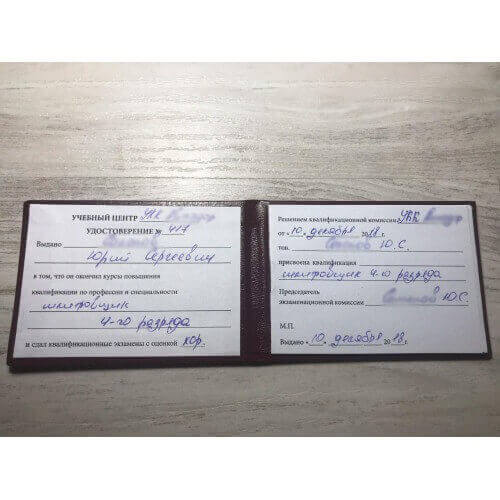 УЧЕБНЫЙ ЦЕНТР УКК
УДОСТОВЕРЕНИЕ № 417
Выдано
Юрий Сергеевич
в том, что он окончил курсы повышения
квалификации по профессии и специальности
шлифовщик
4-го разряда
и сдал квалификационные экзамены с оценкой хор.
Решением квалификационной комиссии УКК
от «10» декабря 2018г.
тов. Ю.С.
присвоена квалификация
шлифовщик 4-го разряда
Председатель
экзаменационной комиссии Ю.С.
М.П.
Выдано «10» декабря 2018г.